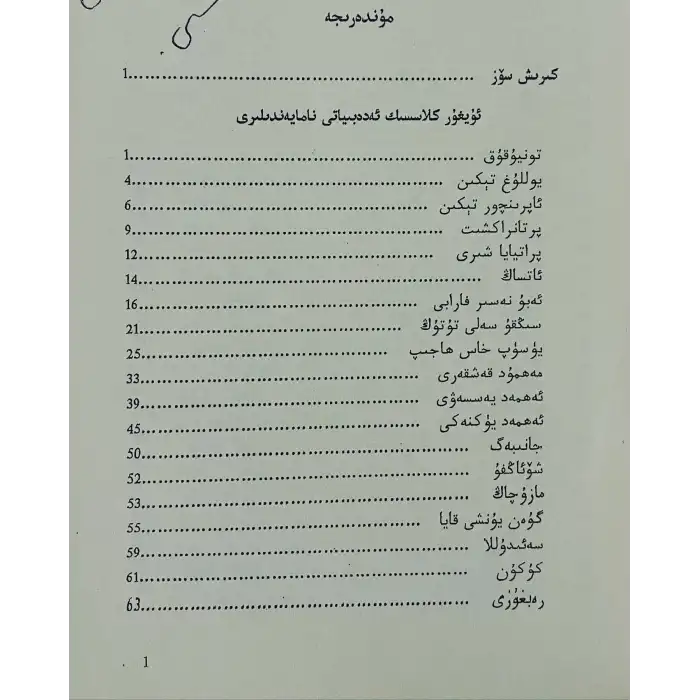 مۇندەرىجە
كىرىش سۆز ............ 1
ئۇيغۇر كلاسسىك ئەدەبىياتى نامايەندىلىرى
تونيۇقۇق ............ 1
يوللۇغ تېكىن ............ 4
ئاپرىنچور تېكىن ............ 6
پرتانراكشىت ............ 9
پراتيايا شىرى ............ 12
ئاتساڭ ............ 14
ئەبۇ نەسىر فارابى ............ 16
سىڭقۇ سەلى تۇتۇڭ ............ 21
يۈسۈپ خاس ھاجىپ ............ 25
مەھمۇد قەشقەرى ............ 33
ئەھمەد يەسسەۋى ............ 39
ئەھمەد يۈكنەكى ............ 45
جانىبەگ ............ 50
شۆئاڭفۇ ............ 52
مازۇچاڭ ............ 53
گۈەن يۈنشى قايا ............ 55
سەئىدۇللا ............ 59
كۆكۈن ............ 61
رەبغۇزى ............ 63
1